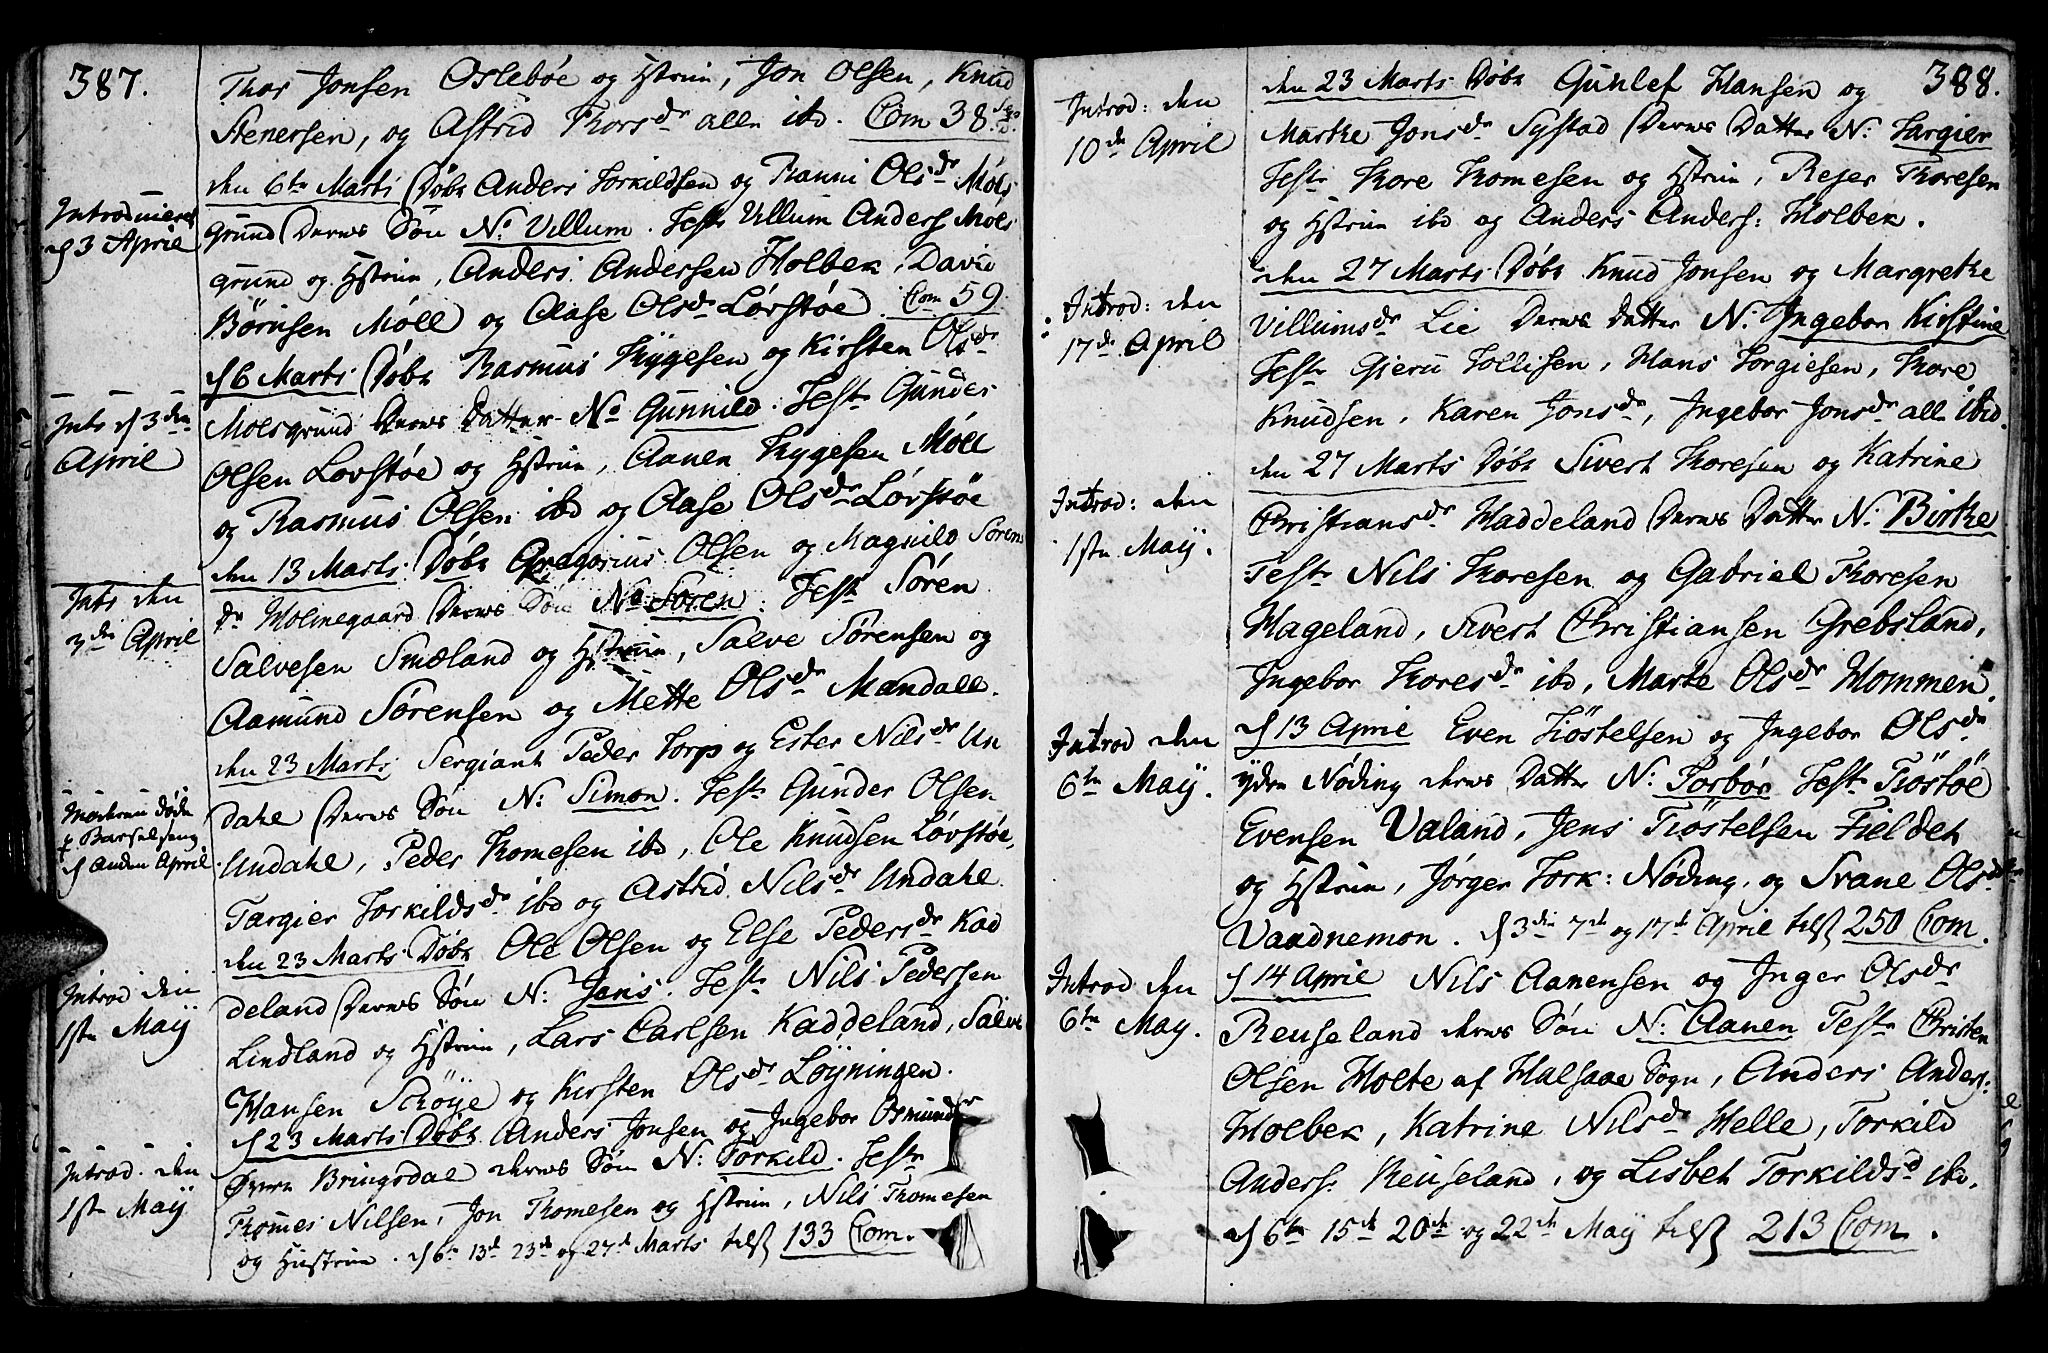 387.
Thor Jonsen Oslebøe og Hstrue, Jon Olsen, Knud
Stenersen, og Astrid Thorsdr alle ibd. Com 38
Introduceret
d 3 April
den 6te Marts Døbt Anders Torkildsen og Ranni Olsdr Møls
grund Deres Søn N: Villum. Test Villum Anders Møls
grund og Hstrue, Anders Andersen Holbek, David
Børuisen Møll og Aase Olsdr Lovstøe. Com 59
Int d 3den
April
d 6 Marts Døbt Rasmus Tygesen og Kirsten Olsdr
Molsgrund Deres Datter No Gunnild. Test Gunder
Olsen Lovstøe og Hstrue, Aanen Tygesen Møll
og Rasmus Olsen ibd og Aase Olsdr Lovstøe
Int den
3die April
den 13 Marts Døbt Gregorius Olsen og Magnild Sørens
dr Holmegaard Deres Søn No Søren. Test Søren
Salvesen Smæland og Hstrue, Salve Sørensen og
Aamund Sørensen og Mette Olsdr Mandall.
Moderen døde
i Barselseng
d Anden April
den 23 Marts Sergiant Peder Torp og Ester Nilsdr Un
dahl Deres Søn N: Simon. Test Gunder Olsen
Undahl, Peder Thomesen ibd, Ole Knudsen Løvstøe,
Targier Torkildsdr ibd og Astrid Nilsdr Undahl
Introd den
1ste Maÿ
den 23 Marts Døbt Ole Olsen og Else Pedersdr Kad
deland Deres Søn N: Jens. Test Nils Pedersen
Lindland og Hstrue, Lars Carlsen Kaddeland, Salve
Hansen Schøye og Kirsten Olsdr Løyningen.
Introd. den
1ste Maÿ
d 23 Marts Døbt Anders Jonsen og Ingebor Osmundsdr
Øvere Bringsdal deres Søn N: Torkild. Test
Thomes Nilsen, Jon Thomesen og Hstrue, Nils Thomesen
og Hustrue. d 6te 13de 23de og 27de Marts tilst 133 Com.
388.
Introd: den
10de April
den 23 Marts Døbt Gunlef Hansen og
Marthe Jonsdr Systad Deres Datter N: Targier
Test Thore Thomesen og Hstrue, Rejer Thoresen
og Hstrue ibd og Anders Anders: Holbek.
Introd: den
17de April
den 27 Marts Døbt Knud Jonsen og Margrethe
Villumsdr Lie Deres Datter N: Ingebor Kirstine
Test Gjeru Tollisen, Hans Torgiesen, Thore
Knudsen, Karen Jonsdr, Ingebor Jonsdr alle ibd.
Introd: den
1ste Maÿ.
den 27 Marts Døbt Sivert Thoresen og Katrine
Christiansdr Haddeland Deres Datter N: Birthe
Test Nils Thoresen og Gabriel Thoresen
Hageland, Sivert Christiansen Grebsland,
Ingebor Thoresdr ibd, Marthe Olsdr Hommen.
Introd den
6te Maÿ.
d 13 April Even Tiøstelsen og Ingebor Olsdr
ydre Nøding deres Datter N: Torbor Test Tiøstøe
Evensen Valand, Jens Tiøstelsen Fieldet
og Hstrue, Jørger Tork: Nøding, og Svane Olsdr
Vaadnemon. d 3die 7de og 17de April tilst 250 Com.
Introd den
6te May.
d 14 April Nils Aanensen og Inger Olsdr
Reuseland deres Søn N: Aanen Test Christen
Olsen Holte af Halsaae Sogn, Anders Anders:
Holbek, Katrine Nilsdr Helle, Torkild
Anders: Reuseland, og Lisbet Torkildsd ibd.
d 6te 15de 20de og 22de Maÿ tilst 213 Com.